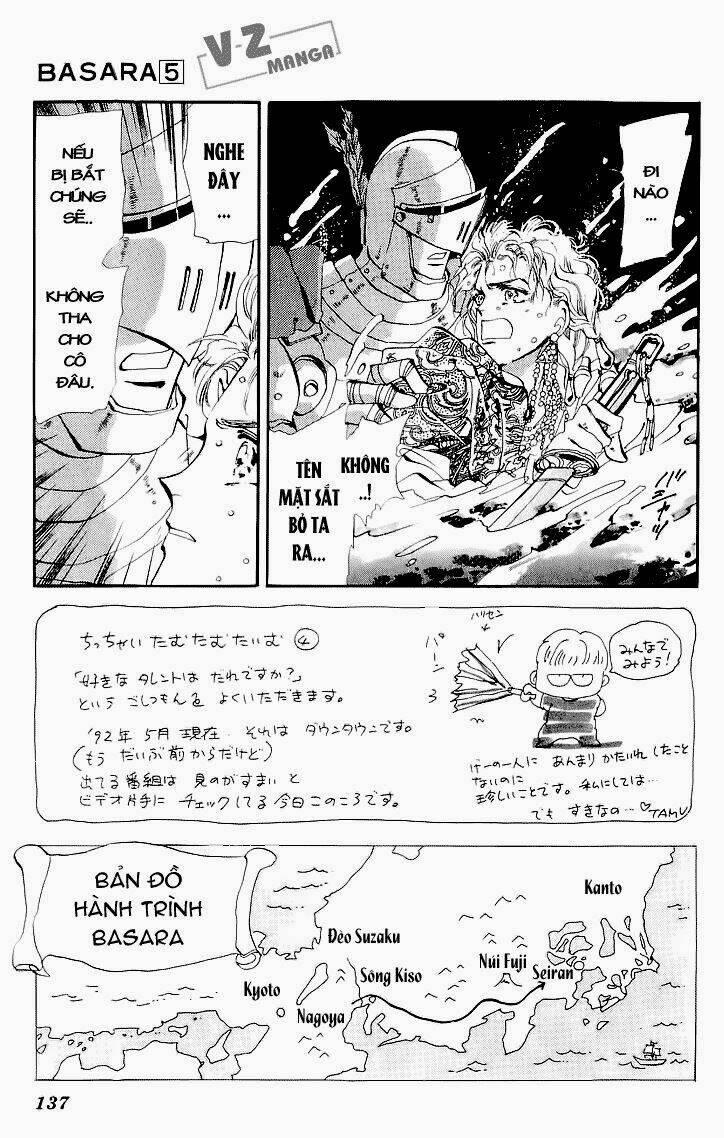 BASARA 5
V-Z
MANGA
ĐI
NÀO
...
KHÔNG
..!
TÊN
MẶT SẮT
BỎ TA
RA...
NGHE
ĐÂY
...
NẾU
BỊ BẮT
CHÚNG
SẼ..
KHÔNG
THA
CHO
CÔ
ĐÂU.
バシャッ
ちっちゃい たむたむたいむ ④
「好きな タレントは だれですか?」
という ごしつもんを よくいただきます。
'92年 5月 現在 それは ダウンタウンです。
(もう だいぶ前からだけど)
出てる番組は 見のがすまい と
ビデオ片手に チェックしてる今日このごろです。
ハリセン
パーン
みんなで
みよう!
げーのー人に あんまり かたいれしたこと
ないのに
珍しいことです。私にしては…
でも すきなの…♡TAMU
BẢN ĐỒ
HÀNH TRÌNH
BASARA
Kanto
Đèo Suzaku
Núi Fuji
Sông Kiso
Seiran
Kyoto
Nagoya
137